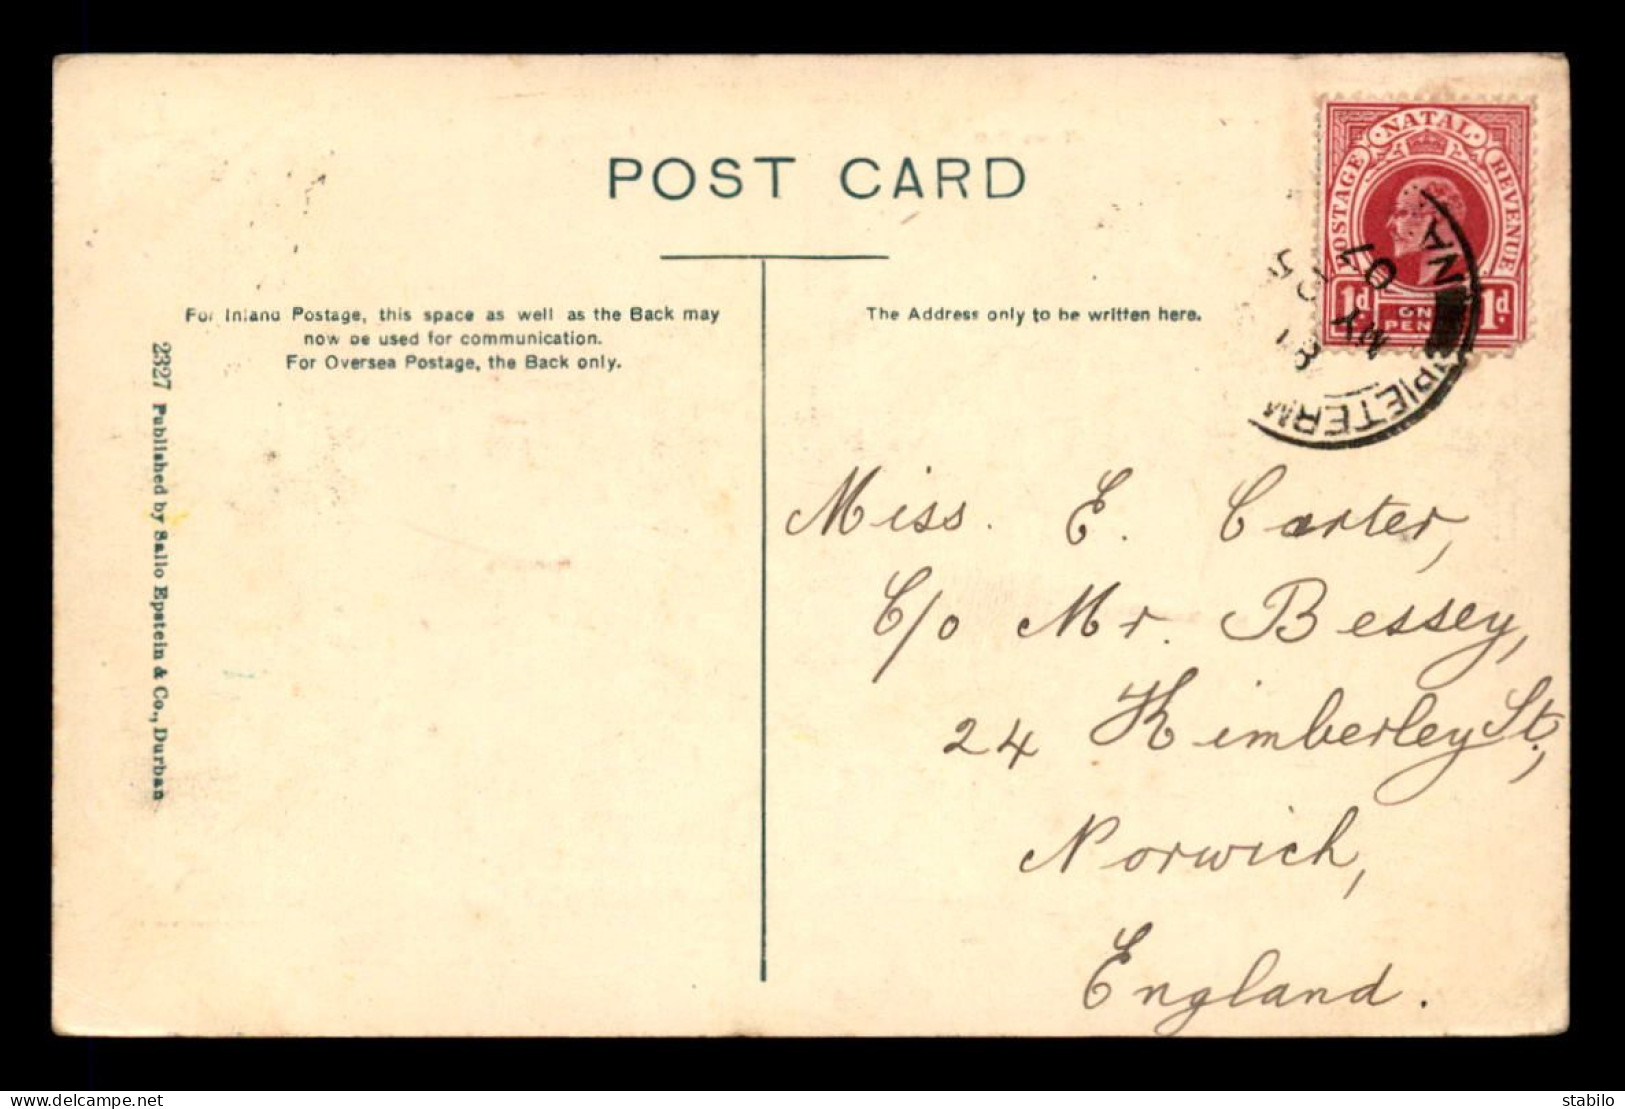 POST CARD
For Inland Postage, this space as well as the Back may
now be used for communication.
For Oversea Postage, the Back only.
The Address only to be written here.
2327 Published by Sallo Epstein & Co., Durban
NATAL
POSTAGE
REVENUE
1d
ONE
PENNY
1d.
PIETERM
NA
MY
07
Miss. E. Carter,
C/o Mr. Bessey,
24 Kimberley St.,
Norwich,
England.
stabilo
www.delcampe.net